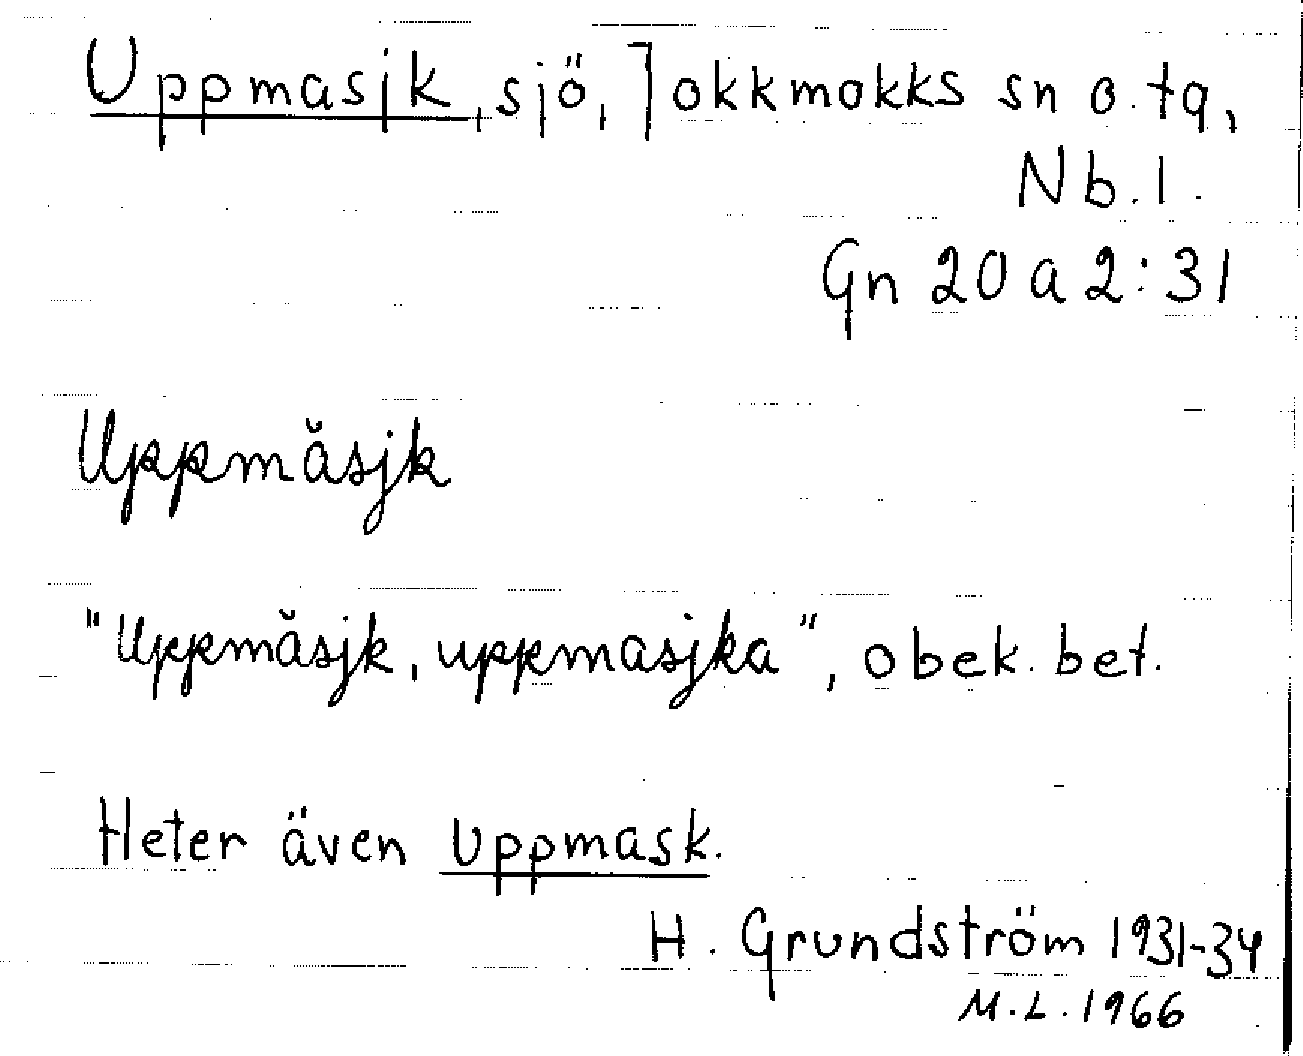 Uppmasjk, sjö, Jokkmokks sn o. tg,
Nb. l.
Gn 20 a 2:31
Uppmăsjk
"Uppmăsjk, uppmasjka", obek. bet.
Heter även Uppmask.
H. Grundström 1931-34
M.L. 1966